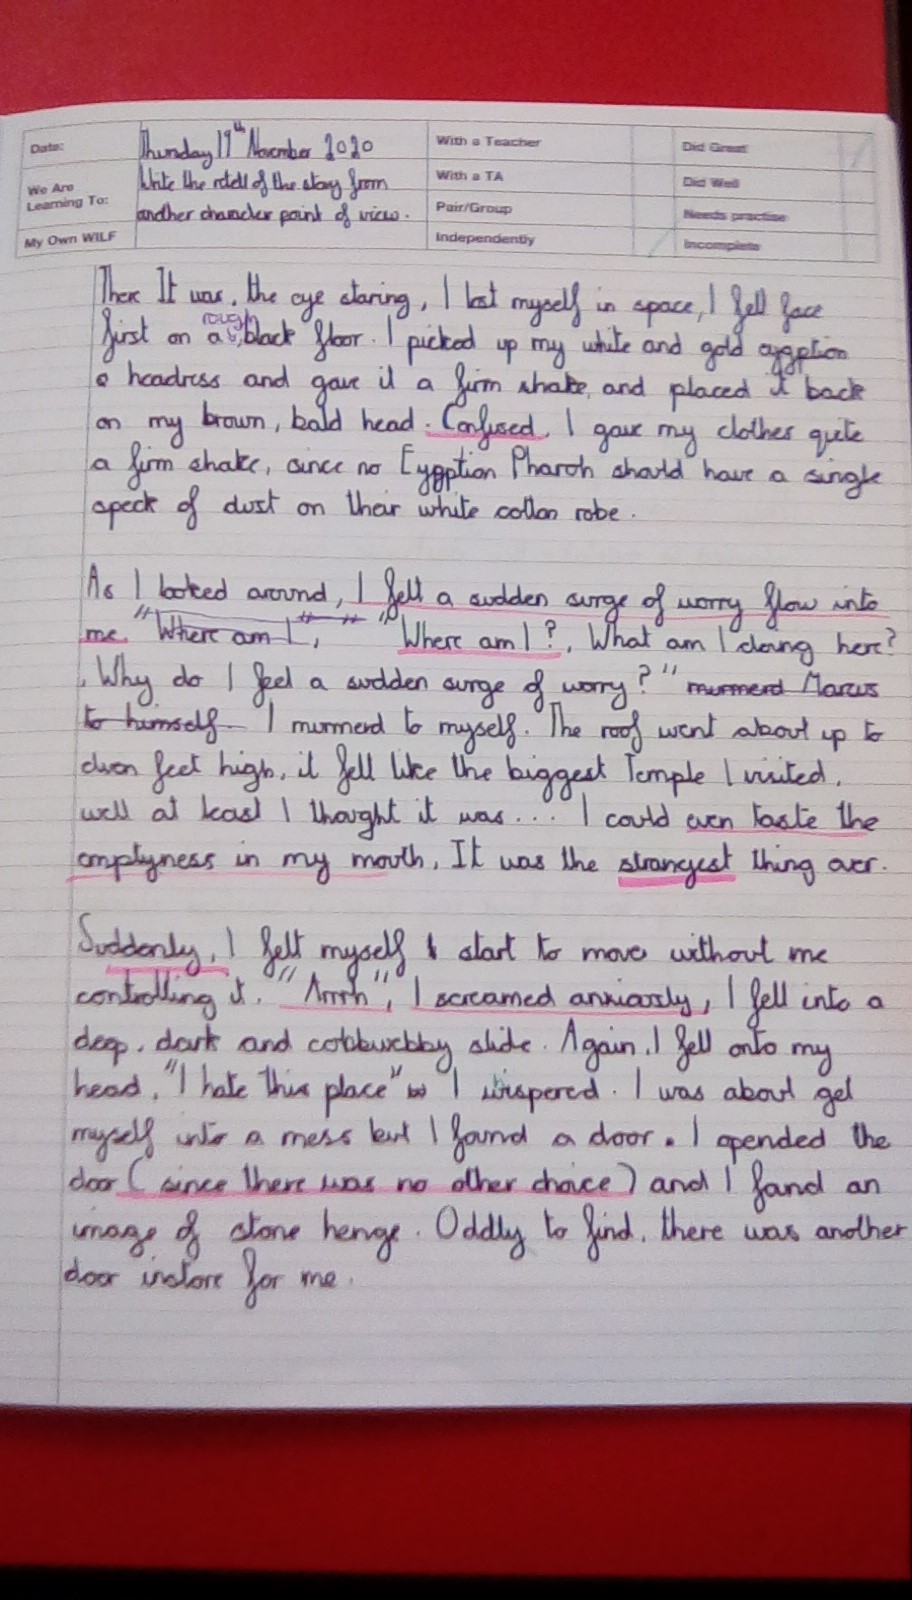 Date:
Thursday 19th November 2020
With a Teacher
Did Great
We Are
Learning To:
Write the retell of the story from
another character point of view.
With a TA
Did Well
Pair/Group
Needs practise
My Own WILF
Independently
Incomplete
There It was, the eye staring, I lost myself in space, I fell face
first on a rough, black floor. I picked up my white and gold eygption
headress and gave it a firm shake, and placed it back
on my brown, bald head. Confused, I gave my clothes quite
a firm shake, since no Eygption Pharoh should have a single
speck of dust on their white cotton robe.
As I looked around, I felt a sudden surge of worry flow into
me. "Where am I, "Where am I?, What am I doing here?
, Why do I feel a sudden surge of worry?" murmerd Marcus
to himself I murmerd to myself. The roof went about up to
elven feet high, it felt like the biggest Temple I visited,
well at least I thought it was... I could even taste the
emptyness in my mouth, It was the strangest thing ever.
Suddenly, I felt myself start to move without me
controlling it. "Arrrh", I screamed anxiously, I fell into a
deep, dark and cobbwebby slide. Again, I fell onto my
head, "I hate this place" I wispered. I was about get
myself into a mess but I found a door. I opended the
door (since there was no other choice) and I found an
image of stone henge. Oddly to find, there was another
door instore for me.